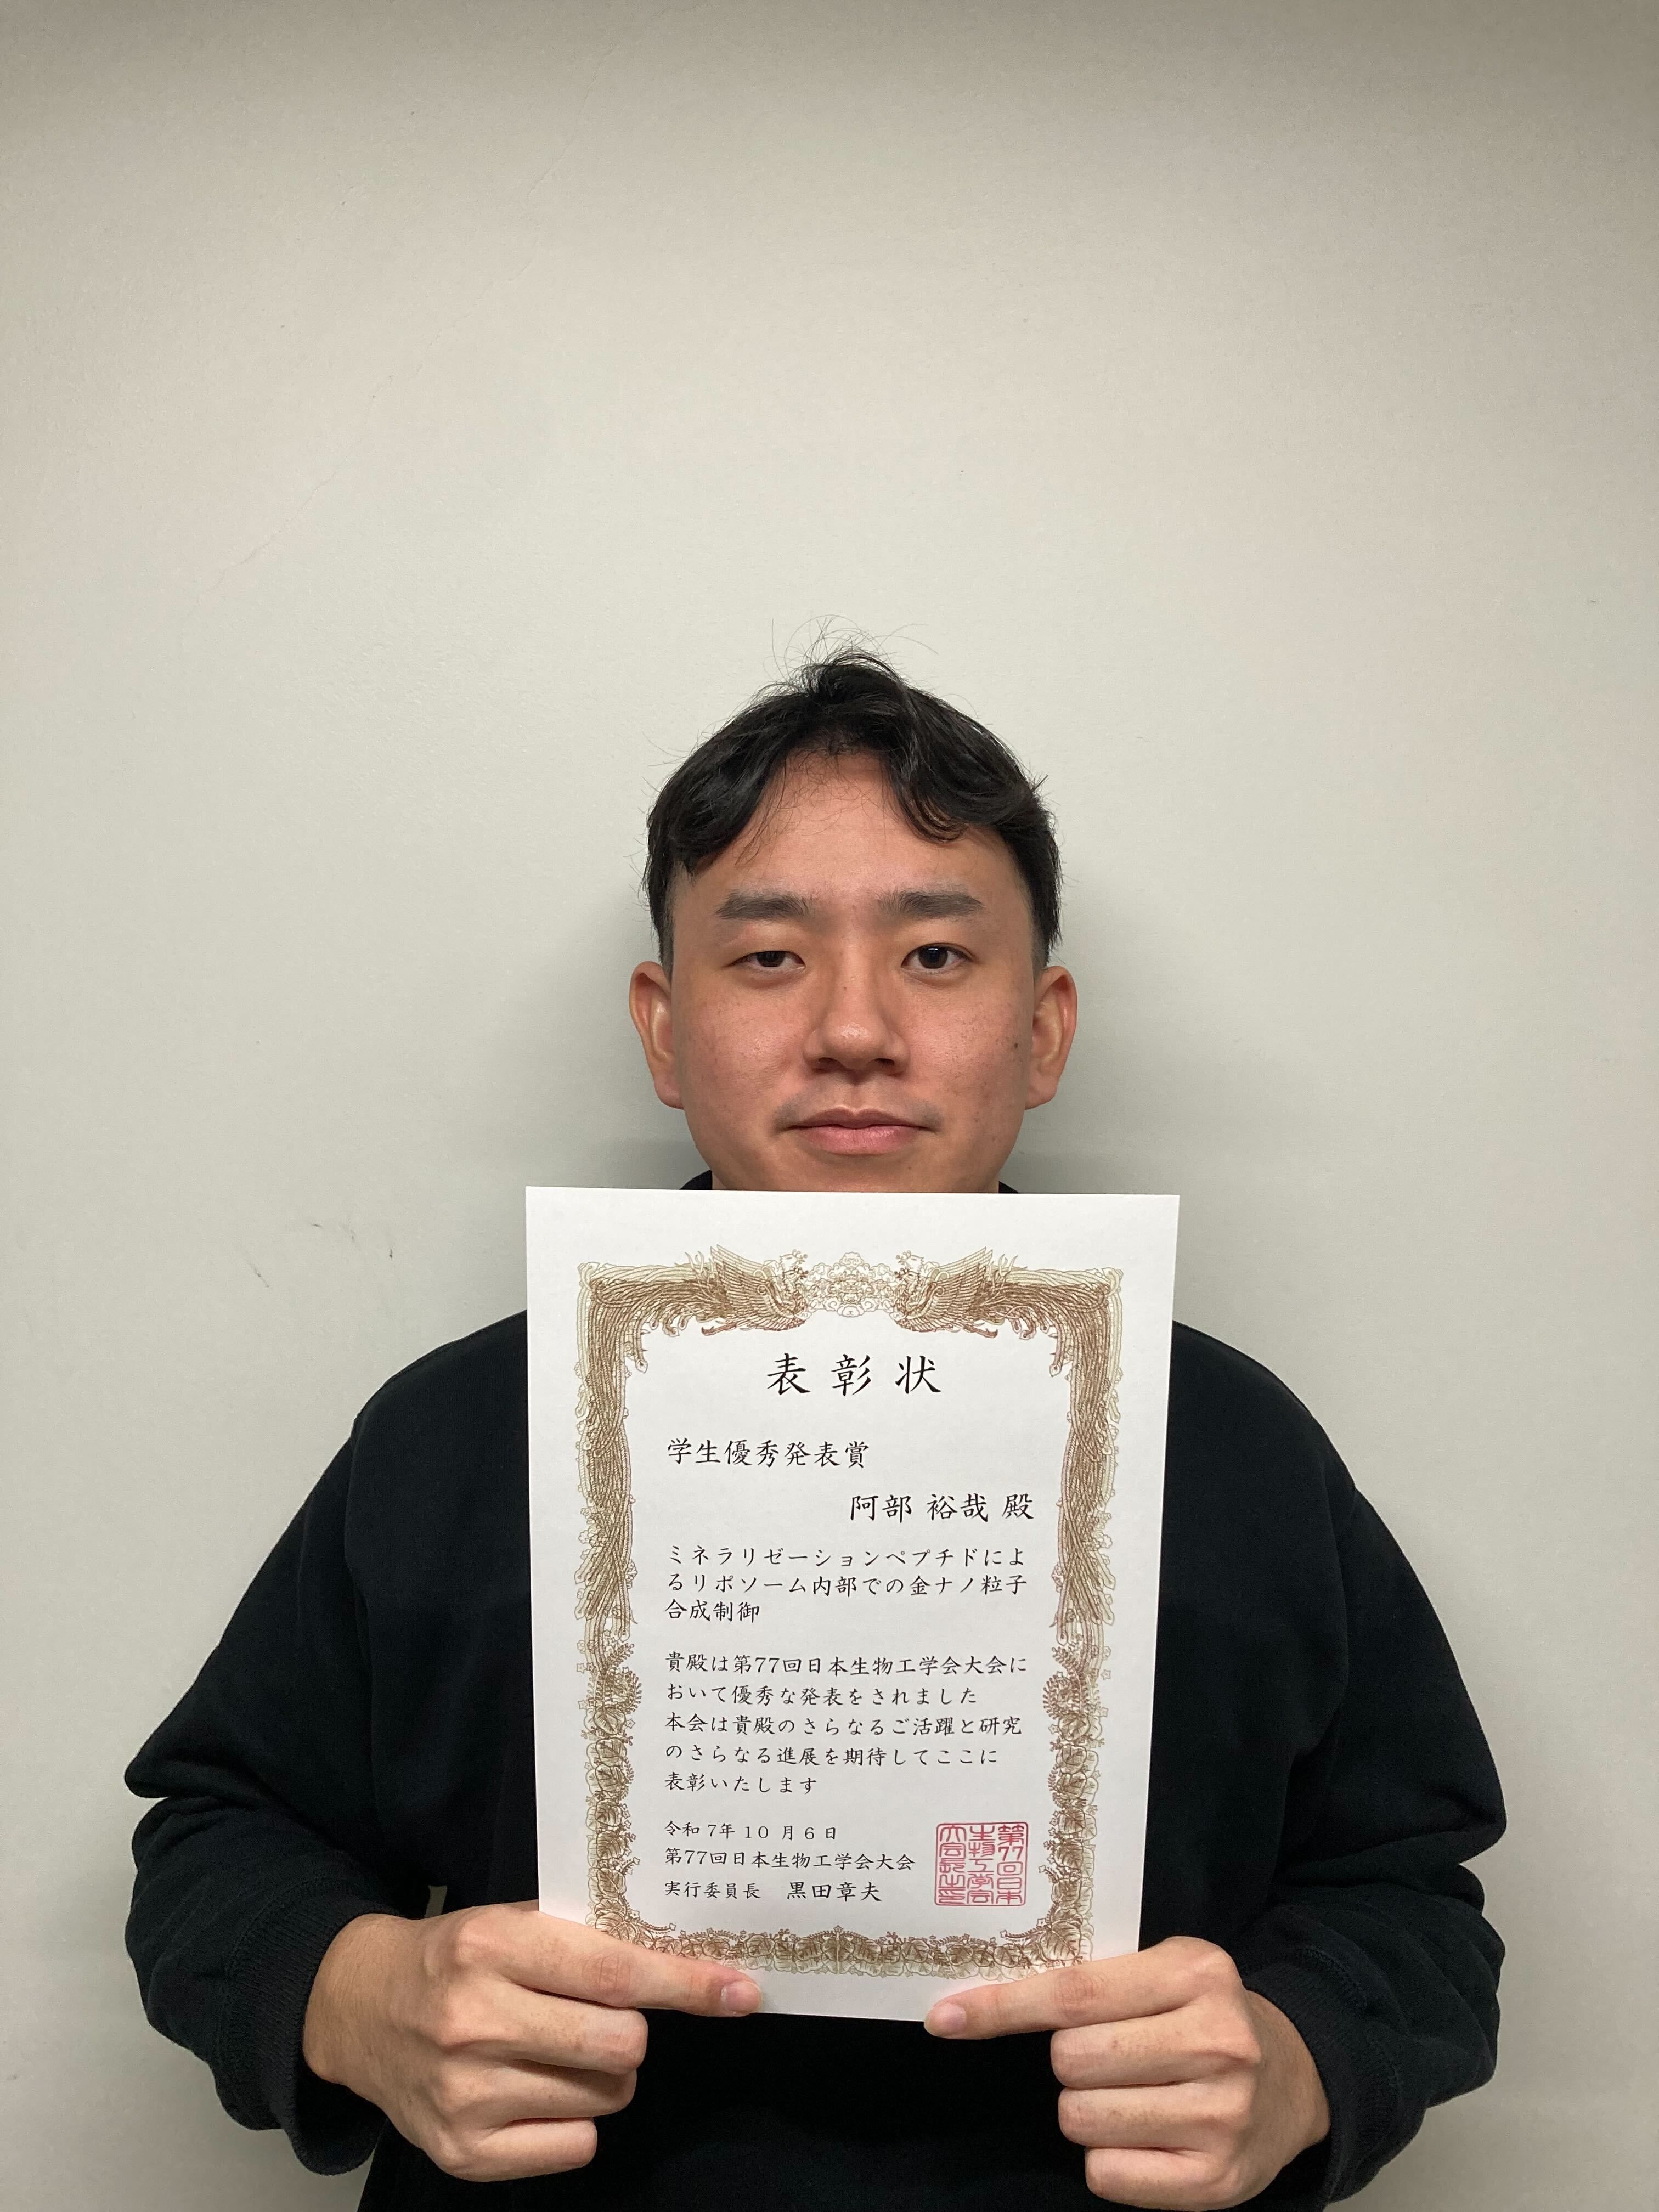 表彰状
学生優秀発表賞
阿部 裕哉 殿
ミネラリゼーションペプチドによ
るリポソーム内部での金ナノ粒子
合成制御
貴殿は第77回日本生物工学会大会に
おいて優秀な発表をされました
本会は貴殿のさらなるご活躍と研究
のさらなる進展を期待してここに
表彰いたします
令和 7年 10 月 6 日
第77回日本生物工学会大会
実行委員長 黒田章夫
第77回日本
生物工学会
大会長之印